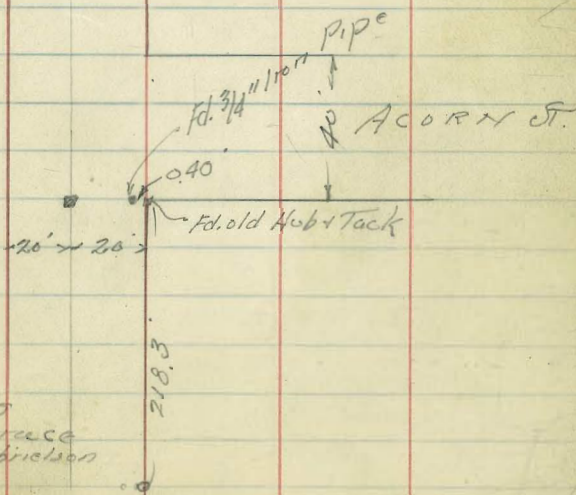 Fd. 3/4" Iron Pipe
40'
ACORN ST.
0.40'
Fd. old Hub & Tack
20' 20'
218.3'